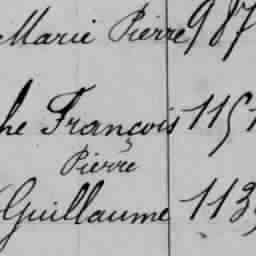 Marie Pierre 987
he François 1151
Pierre
Guillaume 113